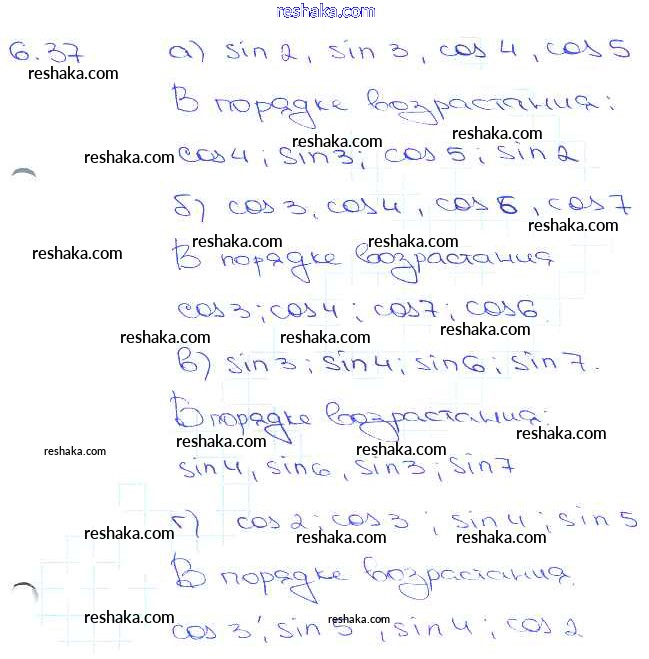 reshaka.com
6.37 а) sin 2, sin 3, cos 4, cos 5
reshaka.com
В порядке возрастания:
reshaka.com reshaka.com reshaka.com
cos 4; sin 3; cos 5; sin 2
б) cos 3, cos 4, cos 6, cos 7
reshaka.com reshaka.com reshaka.com
В порядке возрастания
cos 3; cos 4; cos 7; cos 6
reshaka.com reshaka.com reshaka.com
в) sin 3; sin 4; sin 6; sin 7.
В порядке возрастания:
reshaka.com reshaka.com reshaka.com reshaka.com
sin 4, sin 6, sin 3; sin 7
г) cos 2; cos 3; sin 4; sin 5
reshaka.com reshaka.com reshaka.com
В порядке возрастания.
reshaka.com reshaka.com reshaka.com
cos 3; sin 5, sin 4; cos 2